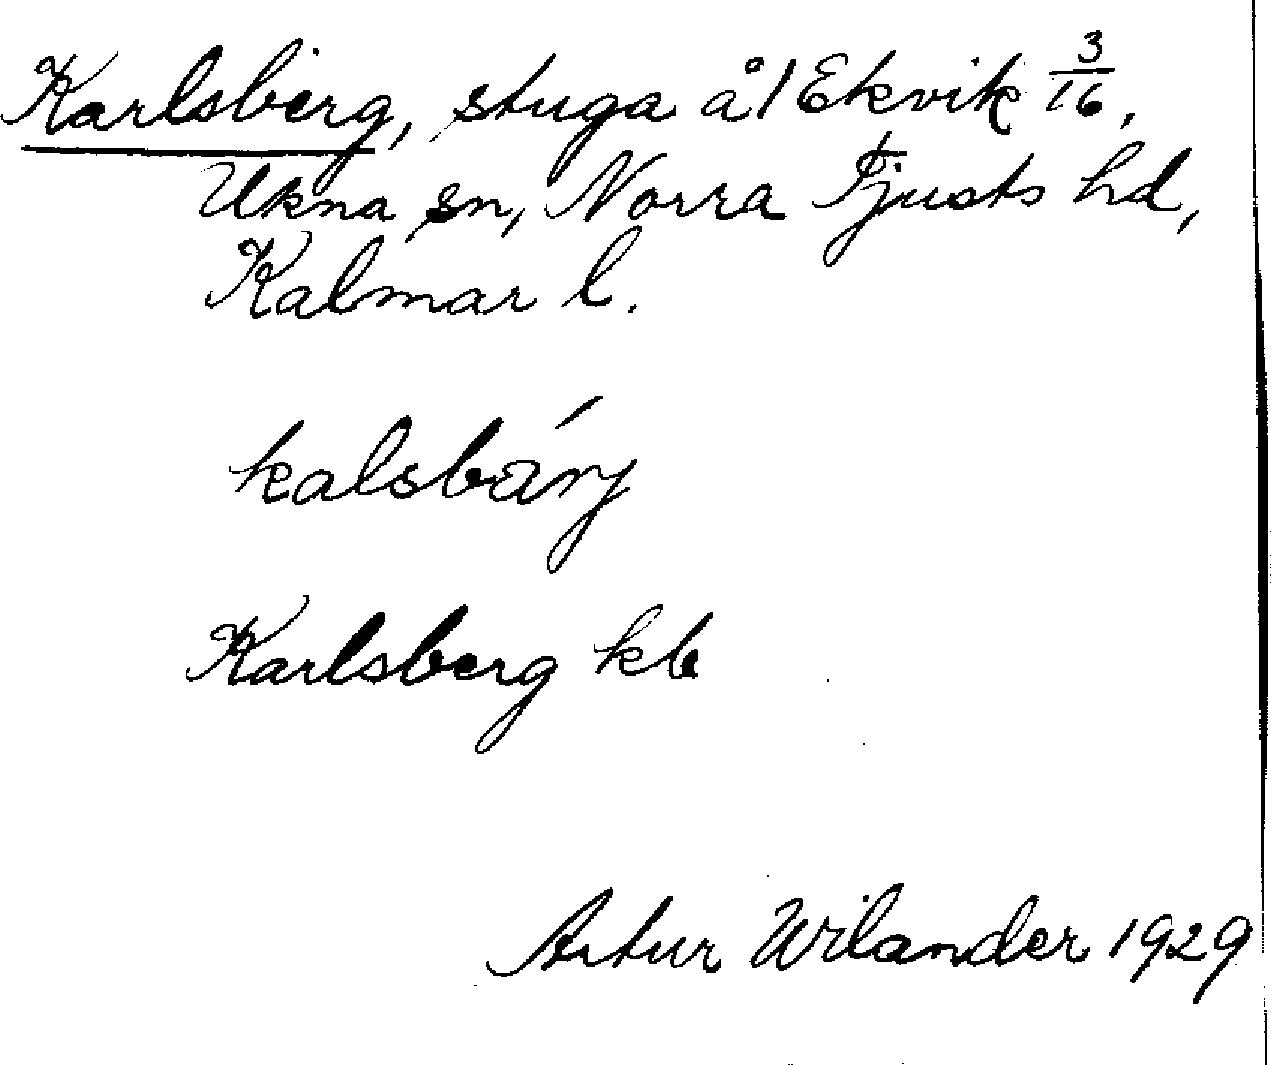 Karlsberg, stuga å 1 Ekvik 3/16,
Ukna sn, Norra Tjusts hd,
Kalmar l.
kalsbärj
Karlsberg kb
Artur Wilander 1929